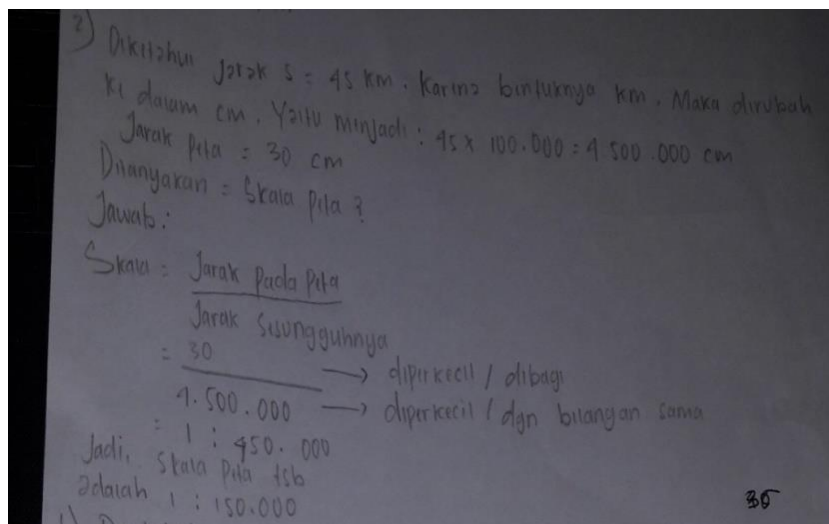 2) Diketahui Jarak s = 45 km. Karena bentuknya km. Maka dirubah
ke dalam cm. Yaitu menjadi : 45 x 100.000 = 4.500.000 cm
Jarak peta = 30 cm
Ditanyakan = Skala peta ?
Jawab :
Skala = Jarak pada peta
Jarak sesungguhnya
= 30 → diperkecil / dibagi
4.500.000 → diperkecil / dgn bilangan sama
= 1 : 450.000
Jadi, skala peta tsb
adalah 1 : 150.000
35